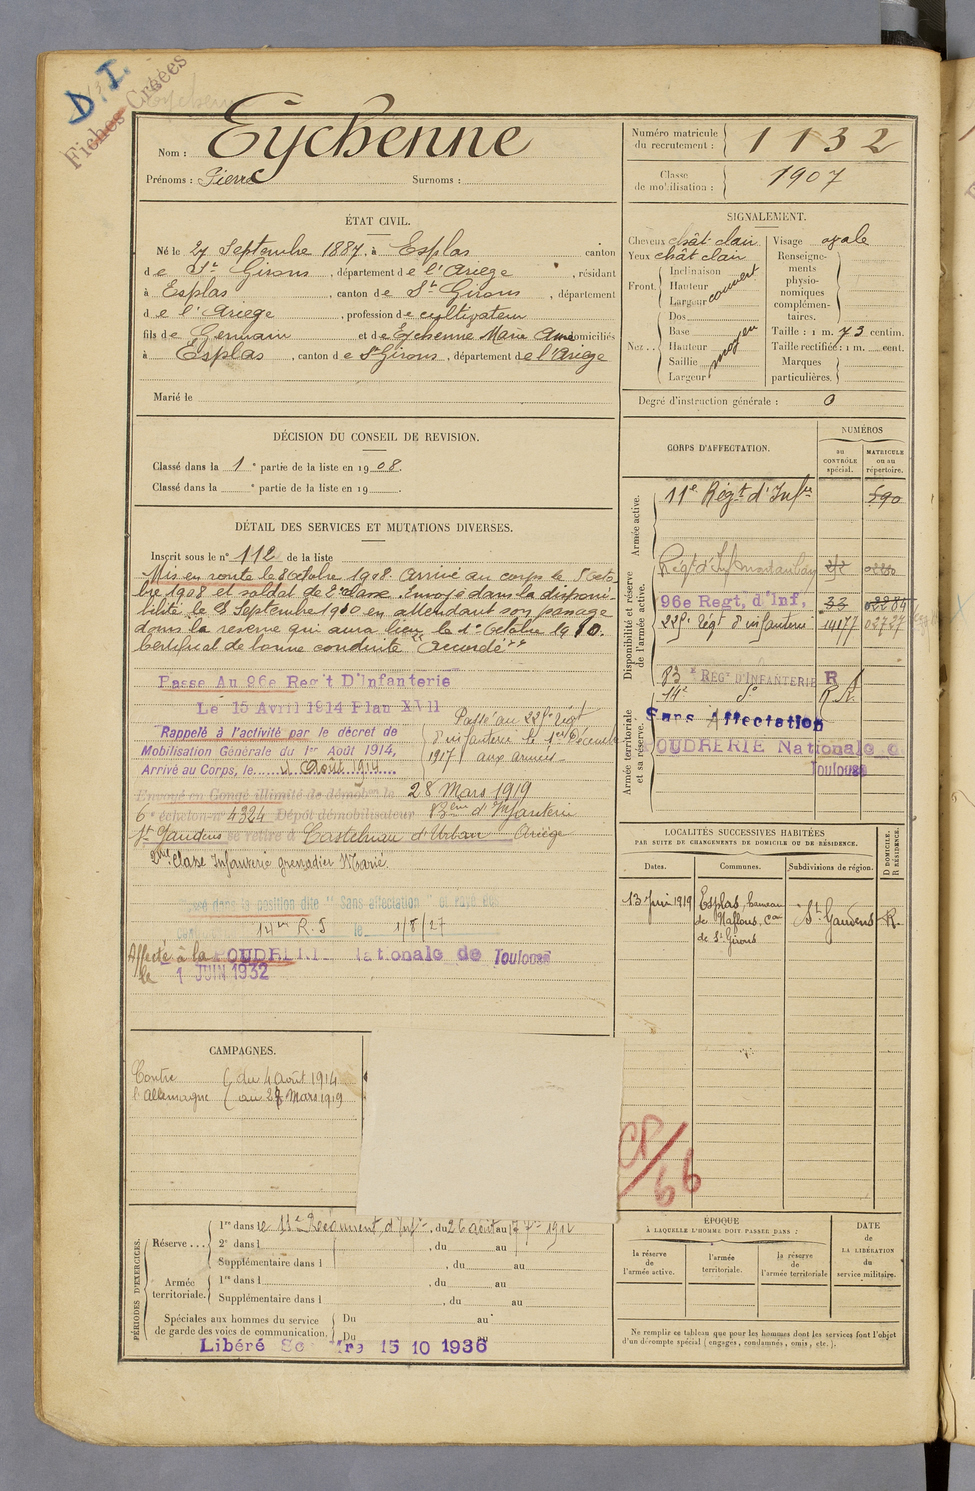 D. I.
Fiches Créées
Nom : Eychenne
Prénoms : Pierre Surnoms :
Numéro matricule du recrutement : 1132
Classe de mobilisation : 1907
ÉTAT CIVIL.
Né le 27 Septembre 1887, à Esplas canton
de St Girons, département de l'Ariège, résidant
à Esplas, canton de St Girons, département
de l'Ariège, profession de cultivateur
fils de Germain et de Eychenne Marie domiciliés
à Esplas, canton de St Girons, département de l'Ariège
Marié le
SIGNALEMENT.
Cheveux chât clair
Yeux chât clair
Front. Inclinaison
Hauteur
Largeur couvert
Nez.. Dos
Base
Hauteur moyen
Saillie
Largeur
Visage ovale
Renseignements physionomiques complémentaires.
Taille : 1 m. 73 centim.
Taille rectifiée : 1 m. cent.
Marques particulières.
Degré d'instruction générale : 0
DÉCISION DU CONSEIL DE REVISION.
Classé dans la 1e partie de la liste en 1908.
Classé dans la e partie de la liste en 19 .
DÉTAIL DES SERVICES ET MUTATIONS DIVERSES.
Inscrit sous le n° 112 de la liste
Mis en route le 8 octobre 1908. Arrivé au corps le octo-
bre 1908 et soldat de 2e classe. Envoyé dans la disponi-
bilité le Septembre 1910 en attendant son passage
dans la réserve qui aura lieu le 1er Octobre 1910.
Certificat de bonne conduite "Accordé"
Passe Au 96e Reg't D'Infanterie
Le 15 Avril 1914 Plan XVII
Rappelé à l'activité par le décret de
Mobilisation Générale du 1er Août 1914,
Arrivé au Corps, le 4 Août 1914
Passé au 225e Régt
d'infanterie le
1917 aux armées
Envoyé en Congé illimité de démob le 28 Mars 1919
6e échelon n° 4324 Dépôt démobilisateur 83eme d'Infanterie
St Gaudens se retire à Castelnau d'Urban Ariège
2me Classe Infanterie grenadier
Passé dans la position dite "Sans affectation"
14me R. I le 1/8/27
Affecté à la POUDRERIE Nationale de Toulouse
le 1 JUIN 1932
CORPS D'AFFECTATION.
NUMÉROS
au CONTRÔLE spécial.
MATRICULE ou au répertoire.
Armée active.
11e Régt d'Infie 590
Disponibilité et réserve de l'armée active.
Régt d'Inf Montauban
96e Regt, d'Inf, 33 02284
225e Régt d'infanterie 14177 02727
83e REGt D'INFANTERIE R
14e do R.
Armée territoriale et sa réserve.
Sans Affectation
POUDRERIE Nationale de
Toulouse
LOCALITÉS SUCCESSIVES HABITÉES
PAR SUITE DE CHANGEMENTS DE DOMICILE OU DE RÉSIDENCE.
Dates.
Communes.
Subdivisions de région.
D DOMICILE. R RÉSIDENCE.
13 Juin 1919 Esplas, hameau St Gaudens R.
de
de St Girons
CAMPAGNES.
Contre l'Allemagne
du 4 Août 1914
au 27 Mars 1919
CP/66
PÉRIODES D'EXERCICES.
Réserve ...
1re dans le 11e Régiment d'Infie, du 26 août au 1912
2e dans l , du au
Supplémentaire dans l , du au
Armée territoriale.
1re dans l , du au
Supplémentaire dans l , du au
Spéciales aux hommes du service de garde des voies de communication.
Du au
Du au
Libéré 15 10 1936
ÉPOQUE
À LAQUELLE L'HOMME DOIT PASSER DANS :
la réserve de l'armée active.
l'armée territoriale.
la réserve de l'armée territoriale
DATE de LA LIBÉRATION du service militaire.
Ne remplir ce tableau que pour les hommes dont les services font l'objet
d'un décompte spécial (engagés, condamnés, omis, etc.).